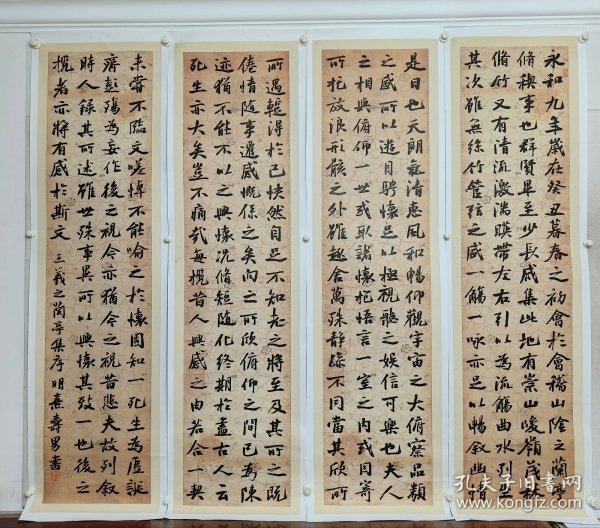 永和九年歲在癸丑暮春之初會於會稽山陰之蘭亭
脩稧事也群賢畢至少長咸集此地有崇山峻嶺茂林
脩竹又有清流激湍暎帶左右引以為流觴曲水列坐
其次雖無絲竹管弦之盛一觴一詠亦足以暢敘幽情
是日也天朗氣清惠風和暢仰觀宇宙之大俯察品類
之盛所以遊目騁懷足以極視聽之娛信可樂也夫人
之相與俯仰一世或取諸懷抱悟言一室之內或因寄
所託放浪形骸之外雖趣舍萬殊靜躁不同當其欣所
所遇輒得於己快然自足不知老之將至及其所之既
倦情隨事遷感慨係之矣向之所欣俯仰之間已為陳
迹猶不能不以之興懷況脩短隨化終期於盡古人云
死生亦大矣豈不痛哉每攬昔人興感之由若合一契
未嘗不臨文嗟悼不能喻之於懷固知一死生為虛誕
齊彭殤為妄作後之視今亦猶今之視昔悲夫故列敘
時人錄其所述雖世殊事異所以興懷其致一也後之
攬者亦將有感於斯文 王羲之蘭亭集序 明熹壽男書
孔夫子旧书网
book.kongfz.com